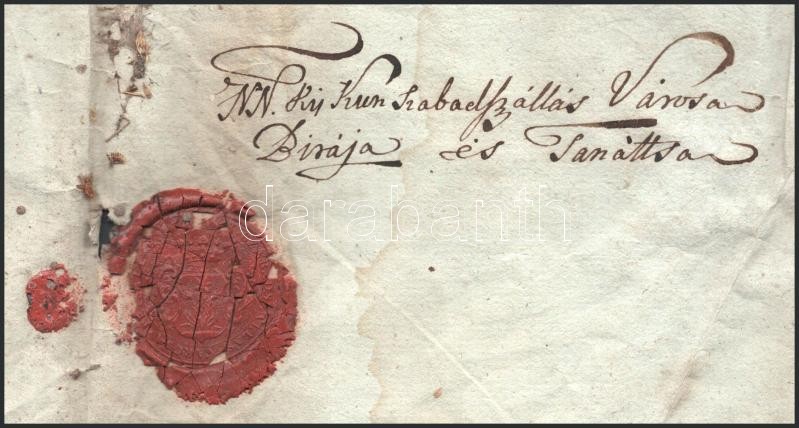 NN. Kis Kun Szabadszállás Városa
Birája és Tanáttsa
darabanth